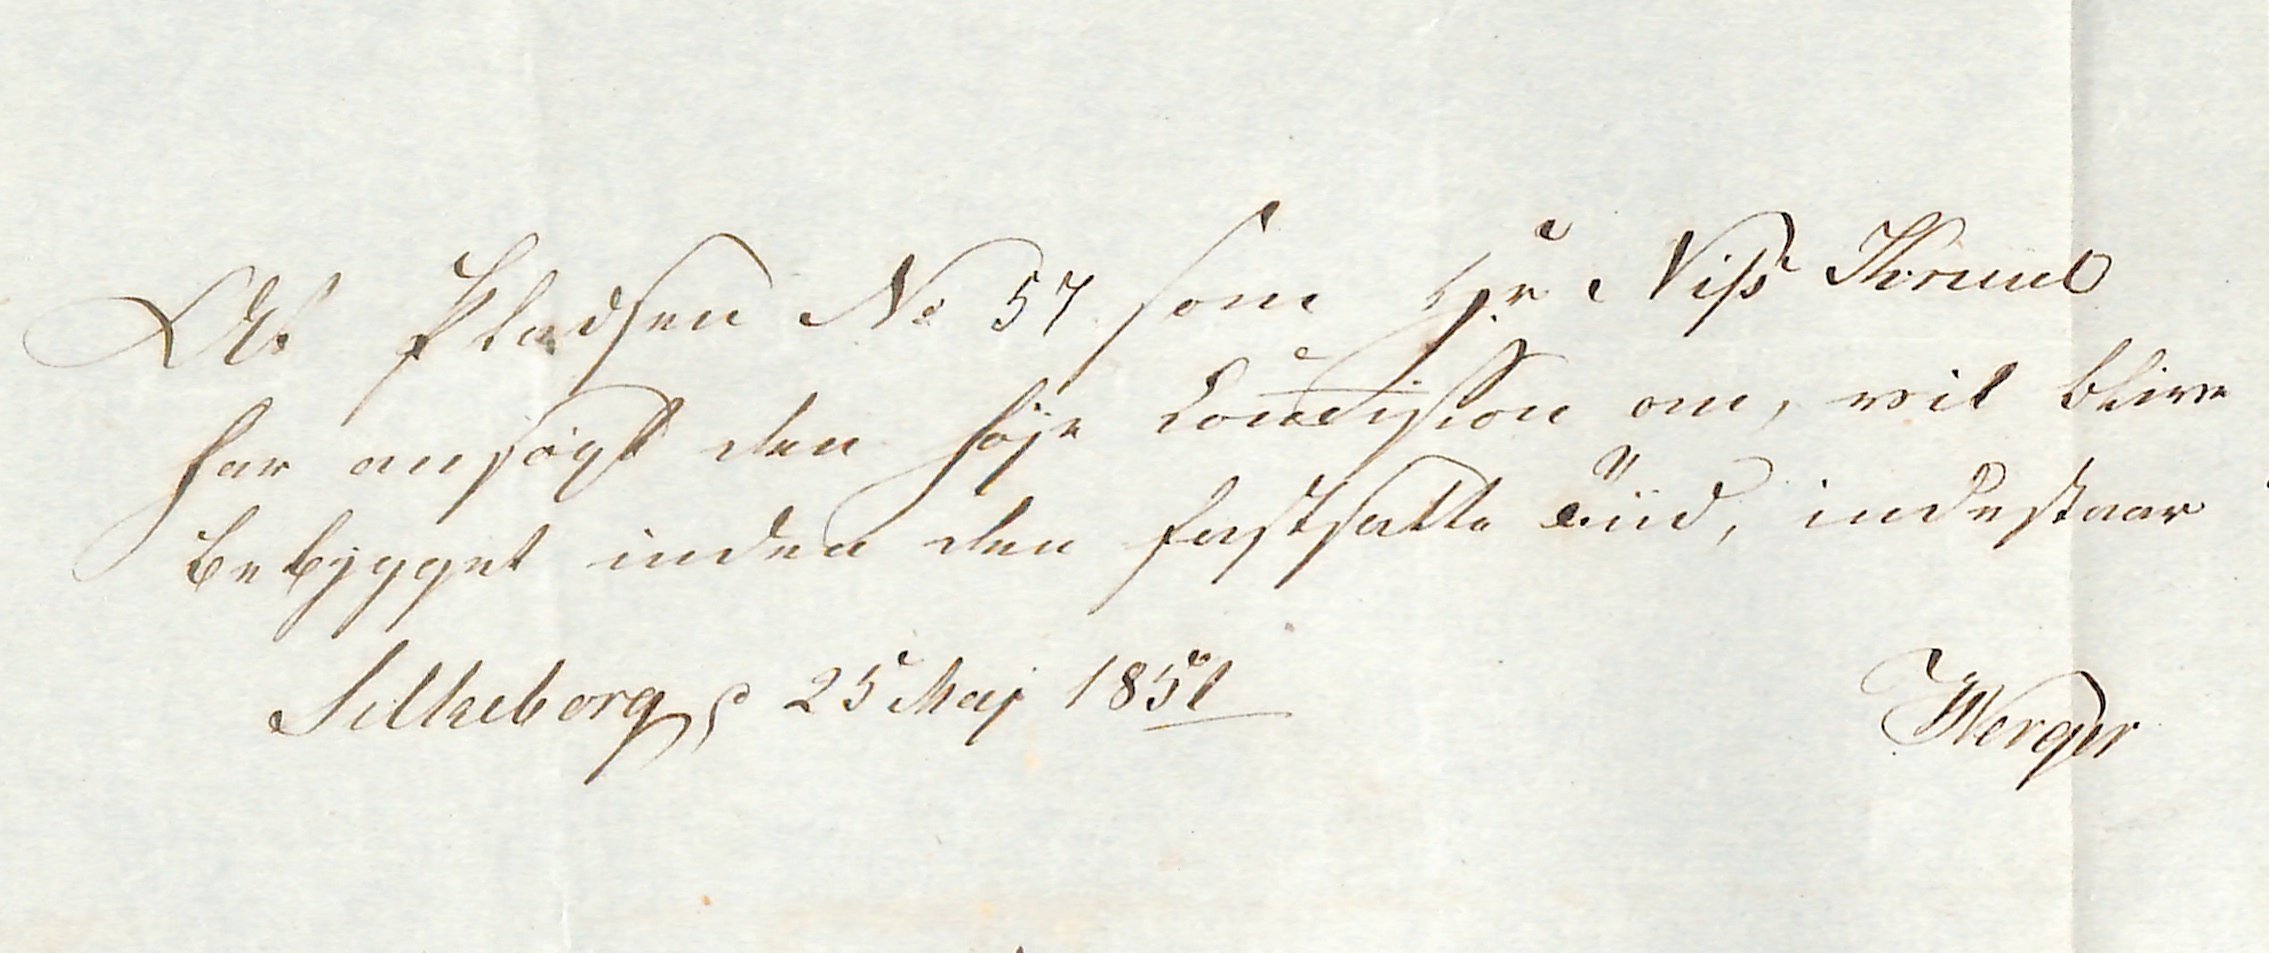 At Pladsen No 57 som Hr Niss
har ansögt den höje Commission om, vil blive
bebygget inden den fastsatte Tiid, indestaar
Silkeborg d 25 Maj 1851
Werger